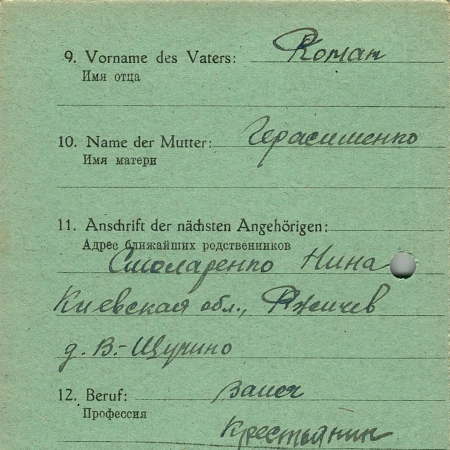 9. Vorname des Vaters: Роман
Имя отца
10. Name der Mutter: Герасименко
Имя матери
11. Anschrift der nächsten Angehörigen:
Адрес ближайших родственников
Смоларенко Нина
Киевская обл., Ржичев
д. В.-Щучино
12. Beruf:
Профессия
Крестьянин